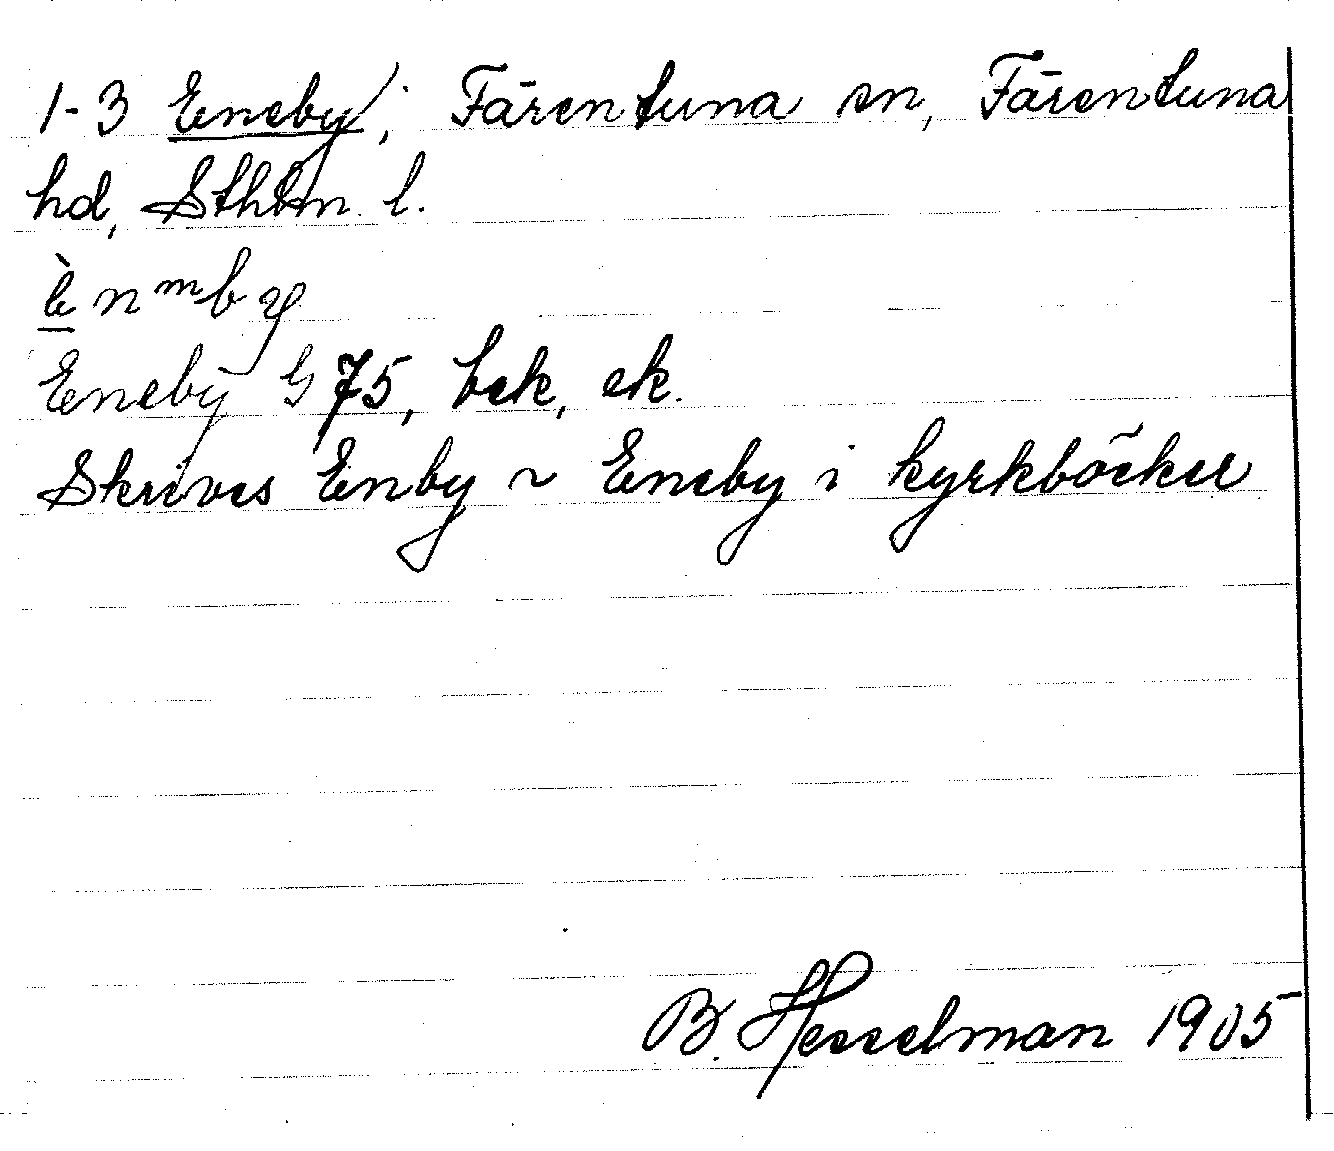 1-3 Eneby; Färentuna sn, Färentuna
hd, Sthlm l.
è nᵐb y
Eneby G 75, bek, ek.
Skrives Enby ~ Eneby i kyrkböcker
B. Hesselman 1905